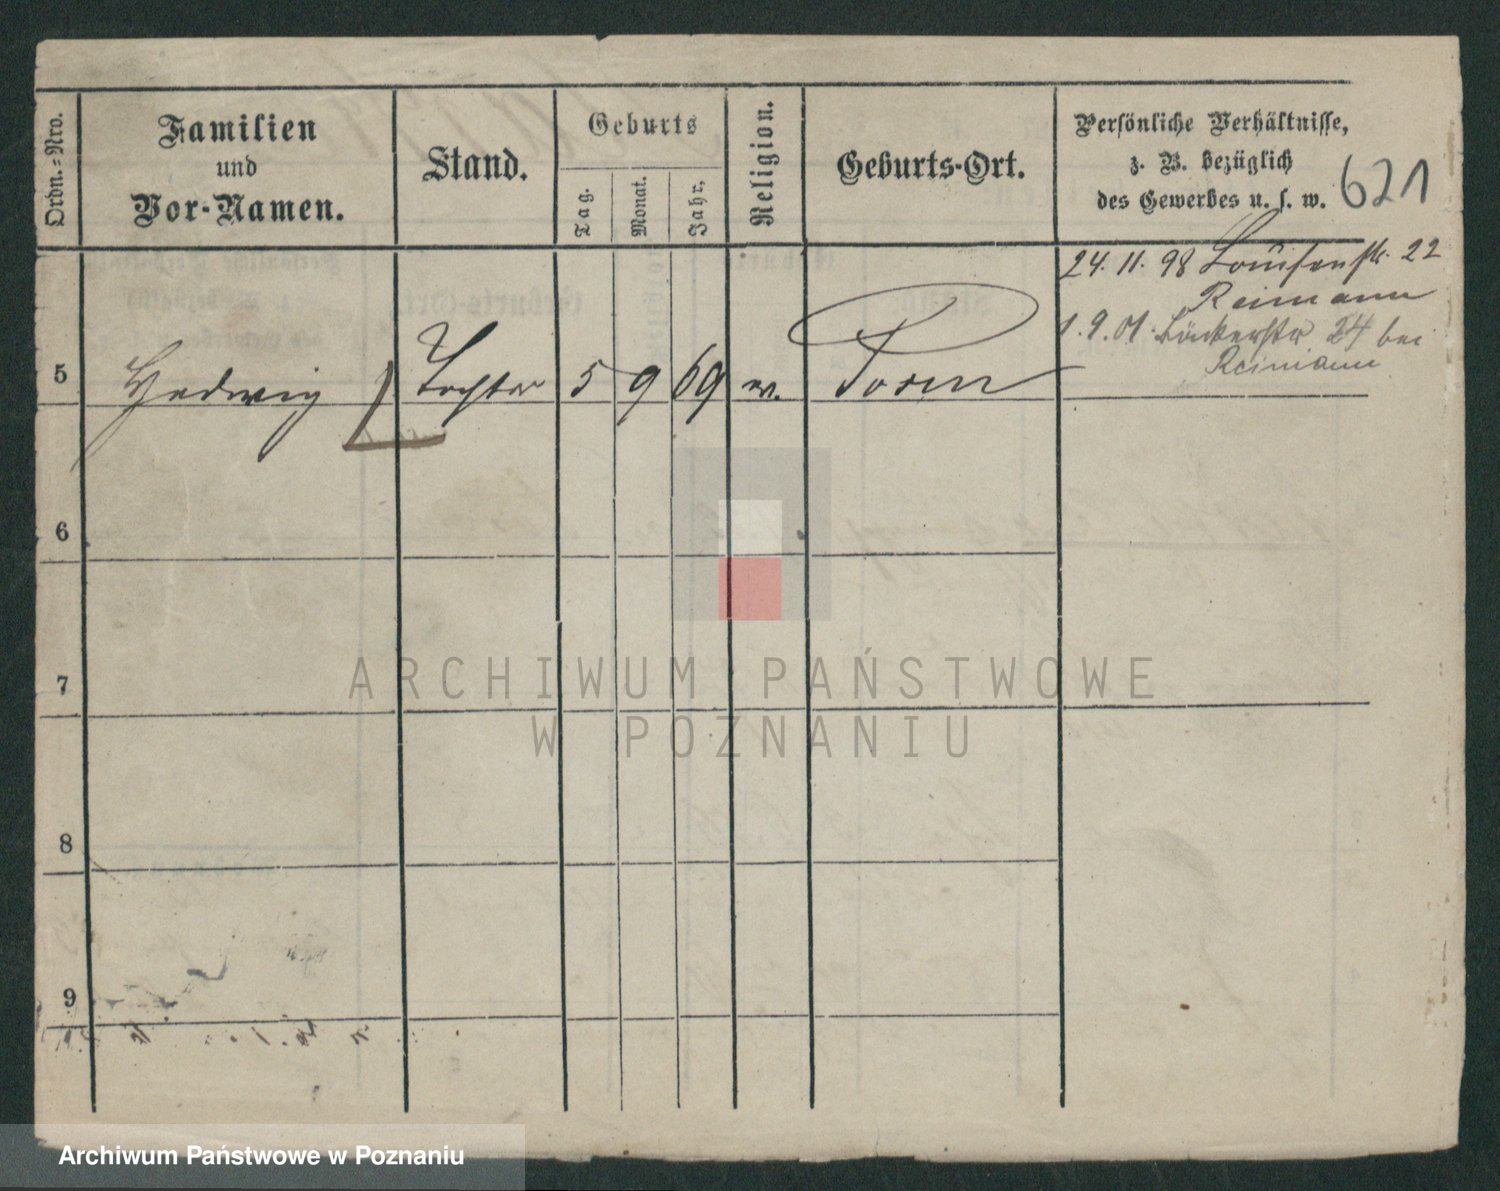 Ordn.-Nro.
Familien
und
Vor-Namen.
Stand.
Geburts
Tag.
Monat.
Jahr.
Religion.
Geburts-Ort.
Persönliche Verhältnisse,
z. B. bezüglich
des Gewerbes u. s. w.
621
24. 11. 98 Louisenstr. 22
Reimann
1. 9. 01. Bäckerstr 24 bei
Reimann
5 Hedwig Tochter 5 9 69 Posen
6
7
8
9
ARCHIWUM PAŃSTWOWE
W POZNANIU
Archiwum Państwowe w Poznaniu